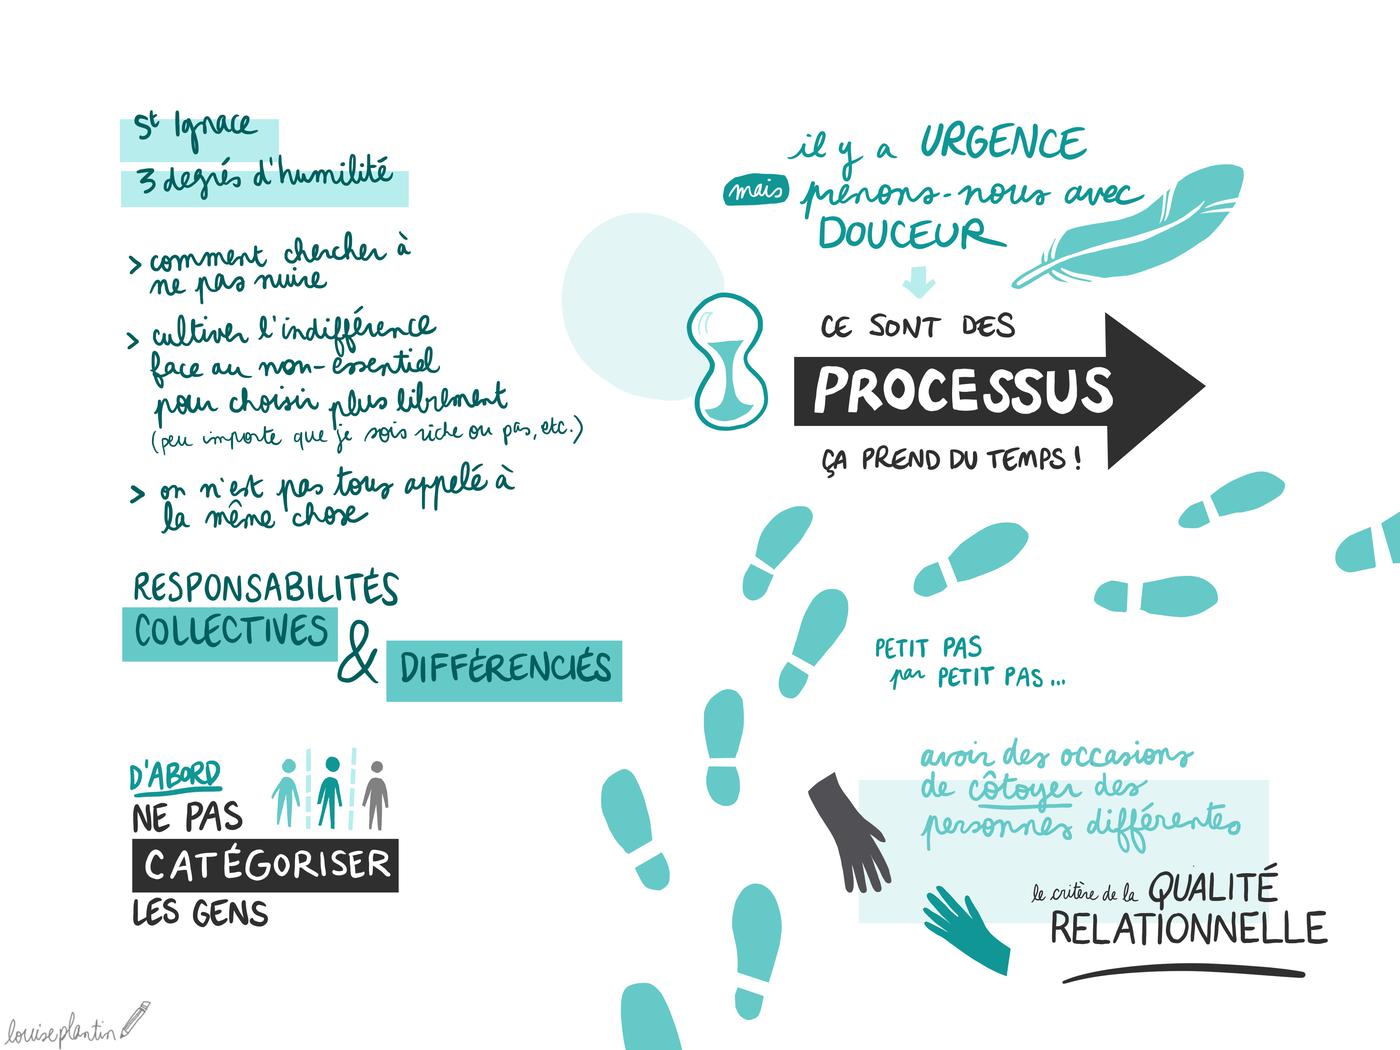 St Ignace
3 degrés d'humilité
> comment chercher à
ne pas nuire
> cultiver l'indifférence
face au non-essentiel
pour choisir plus librement
(peu importe que je sois riche ou pas, etc.)
> on n'est pas tous appelé à
la même chose
RESPONSABILITÉS
COLLECTIVES
&
DIFFÉRENCIÉS
D'ABORD
NE PAS
CATÉGORISER
LES GENS
il y a URGENCE
mais prenons-nous avec
DOUCEUR
CE SONT DES
PROCESSUS
ÇA PREND DU TEMPS !
PETIT PAS
par PETIT PAS...
avoir des occasions
de côtoyer des
personnes différentes
le critère de la QUALITÉ
RELATIONNELLE
louiseplantin